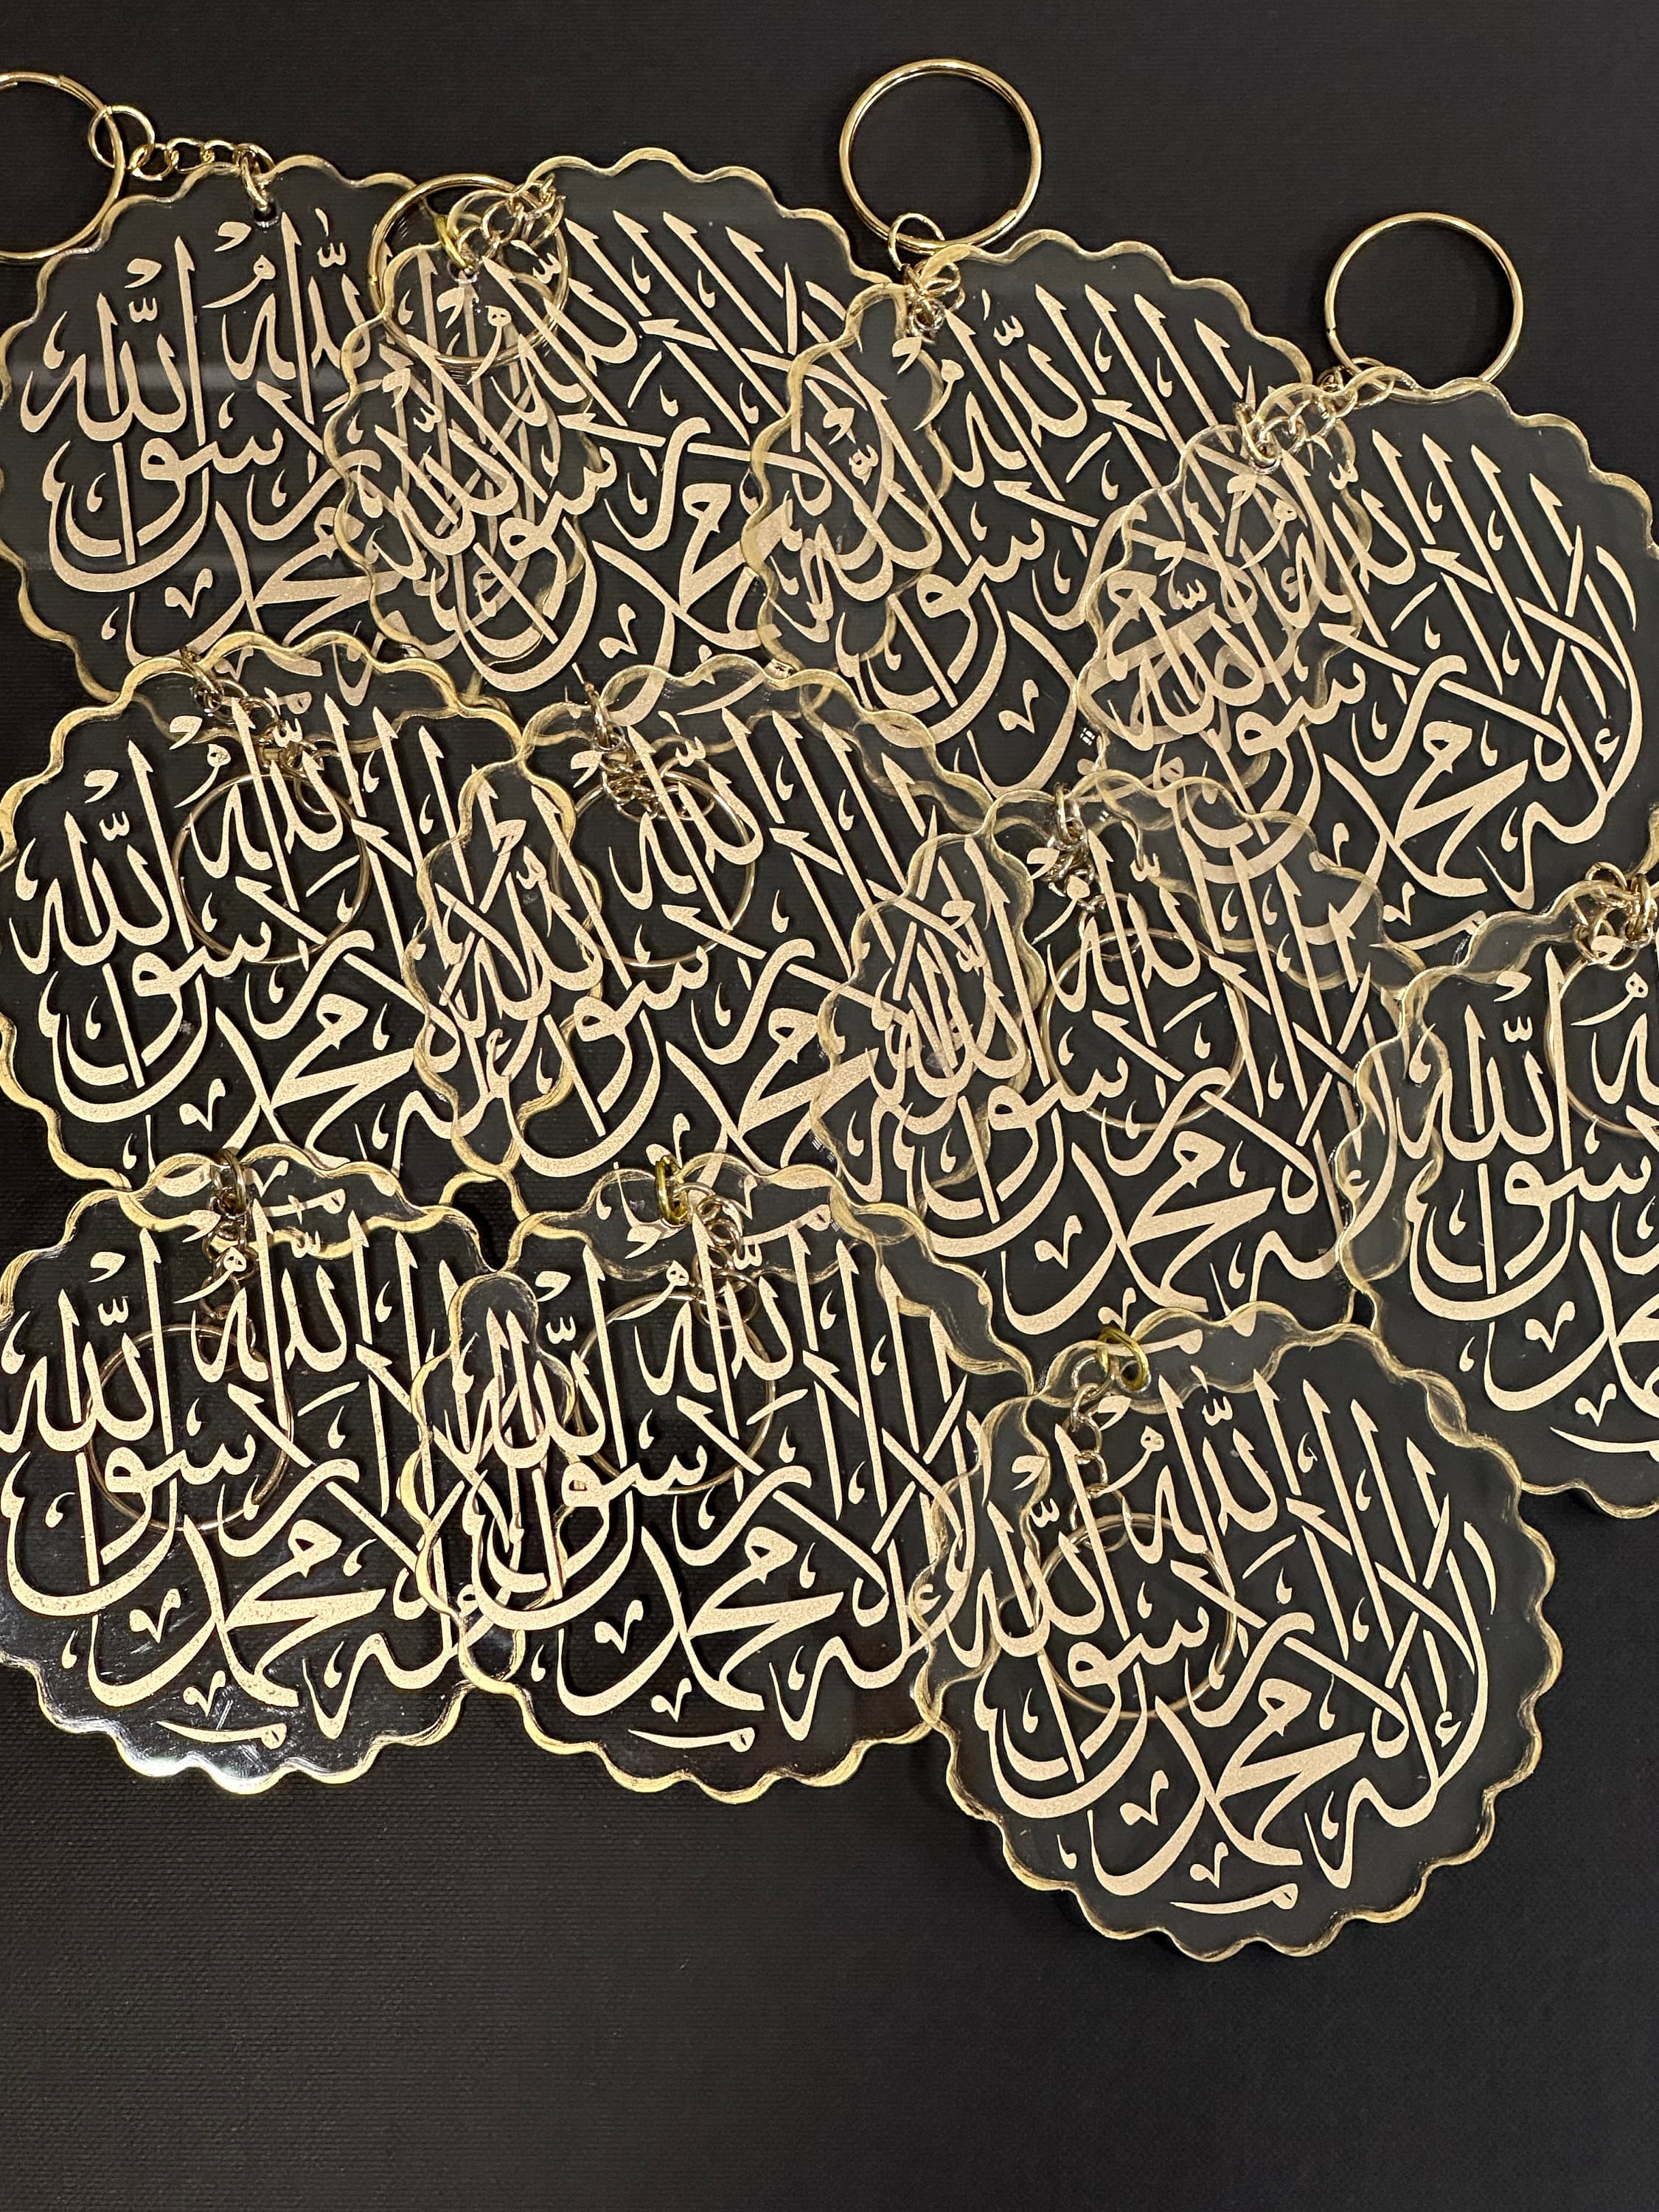 لا إله إلا الله محمد رسول الله
لا إله إلا الله محمد رسول الله
لا إله إلا الله محمد رسول الله
لا إله إلا الله محمد رسول الله
لا إله إلا الله محمد رسول الله
لا إله إلا الله محمد رسول الله
لا إله إلا الله محمد رسول الله
محمد رسول الله
لا إله إلا الله محمد رسول الله
لا إله إلا الله محمد رسول الله
لا إله إلا الله محمد رسول الله